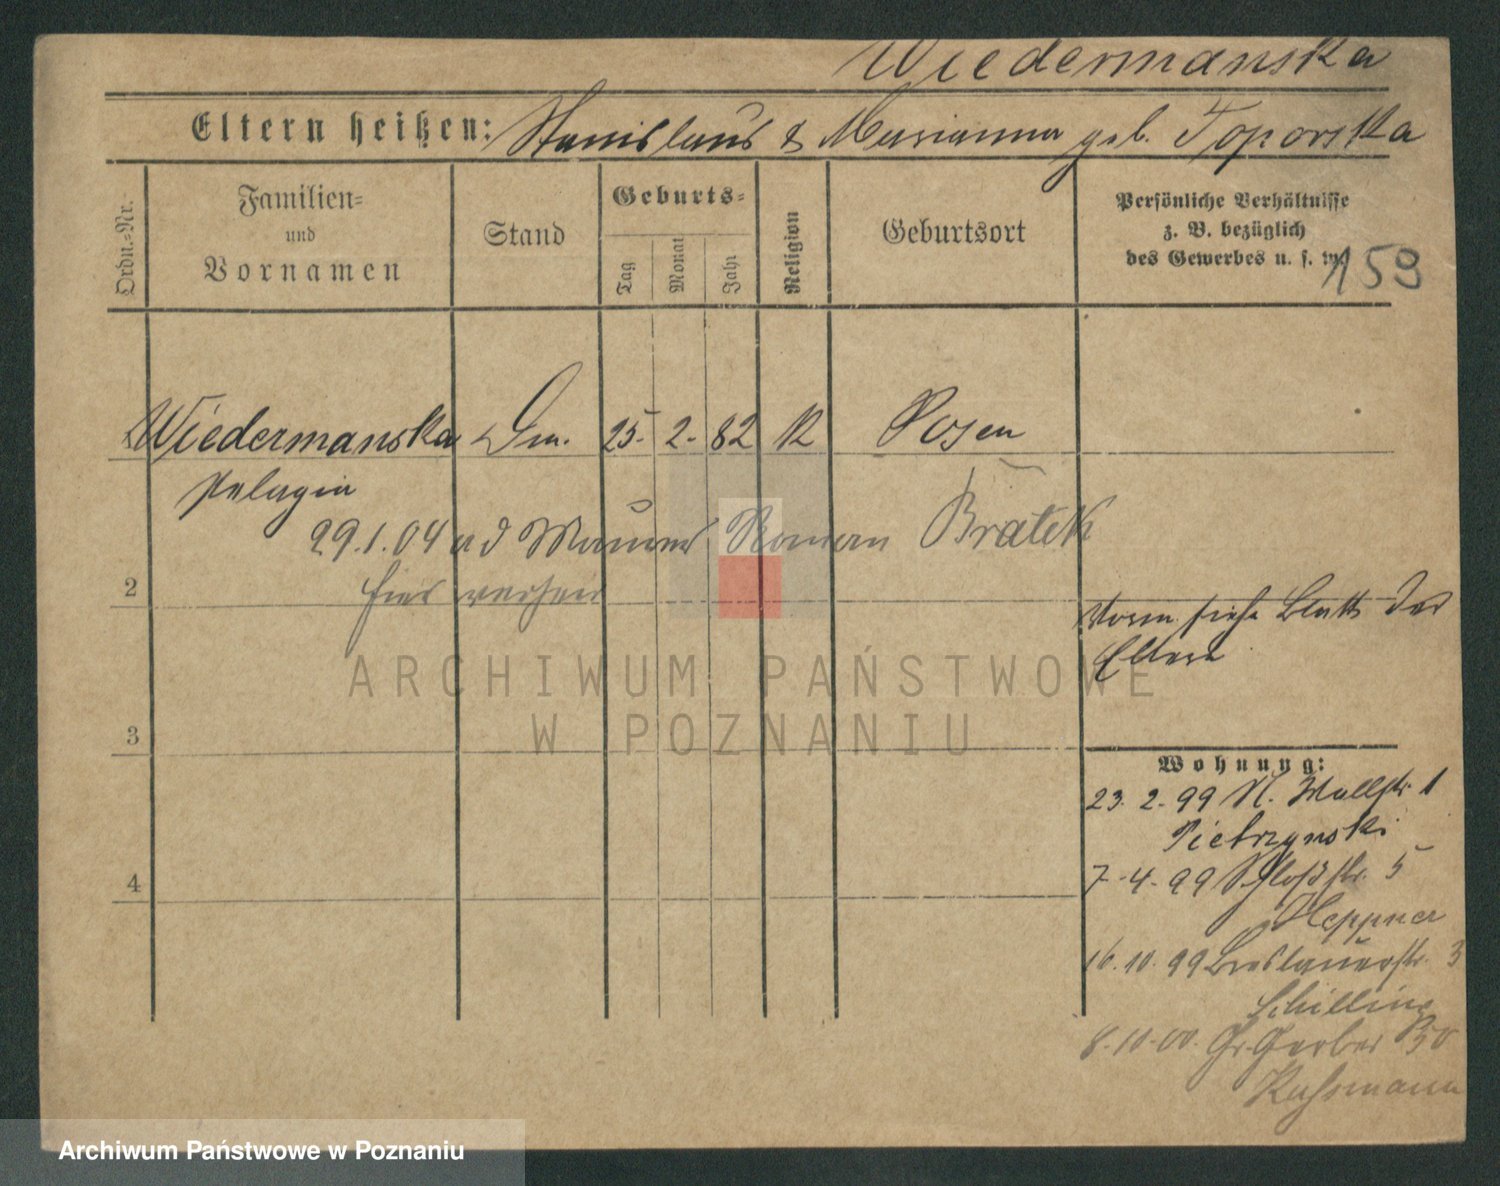 Wiedermanska
Eltern heißen: Stanislaus & Marianna geb. Toporska
Ordn.-Nr.
Familien-
und
Vornamen
Stand
Geburts-
Tag
Monat
Jahr
Religion
Geburtsort
Persönliche Verhältnisse
z. B. bezüglich
des Gewerbes u. s. w.
159
1 Wiedermanska Dm. 25. 2. 82 K Posen
Pelagia
29.1.04 ad Maurer Roman Bratek
hier verh
2
Vorm. siehe Blatt der
Eltern
ARCHIWUM PAŃSTWOWE
W POZNANIU
3
Wohnung:
23. 2. 99 N. Wallstr. 1
Pietrzynski
7. 4. 99 Schloßstr. 5
4
Heppner
16. 10. 99 Breslauerstr. 3
Schilling
8. 10. 00. Gr. Gerber 50
Kußmann
Archiwum Państwowe w Poznaniu